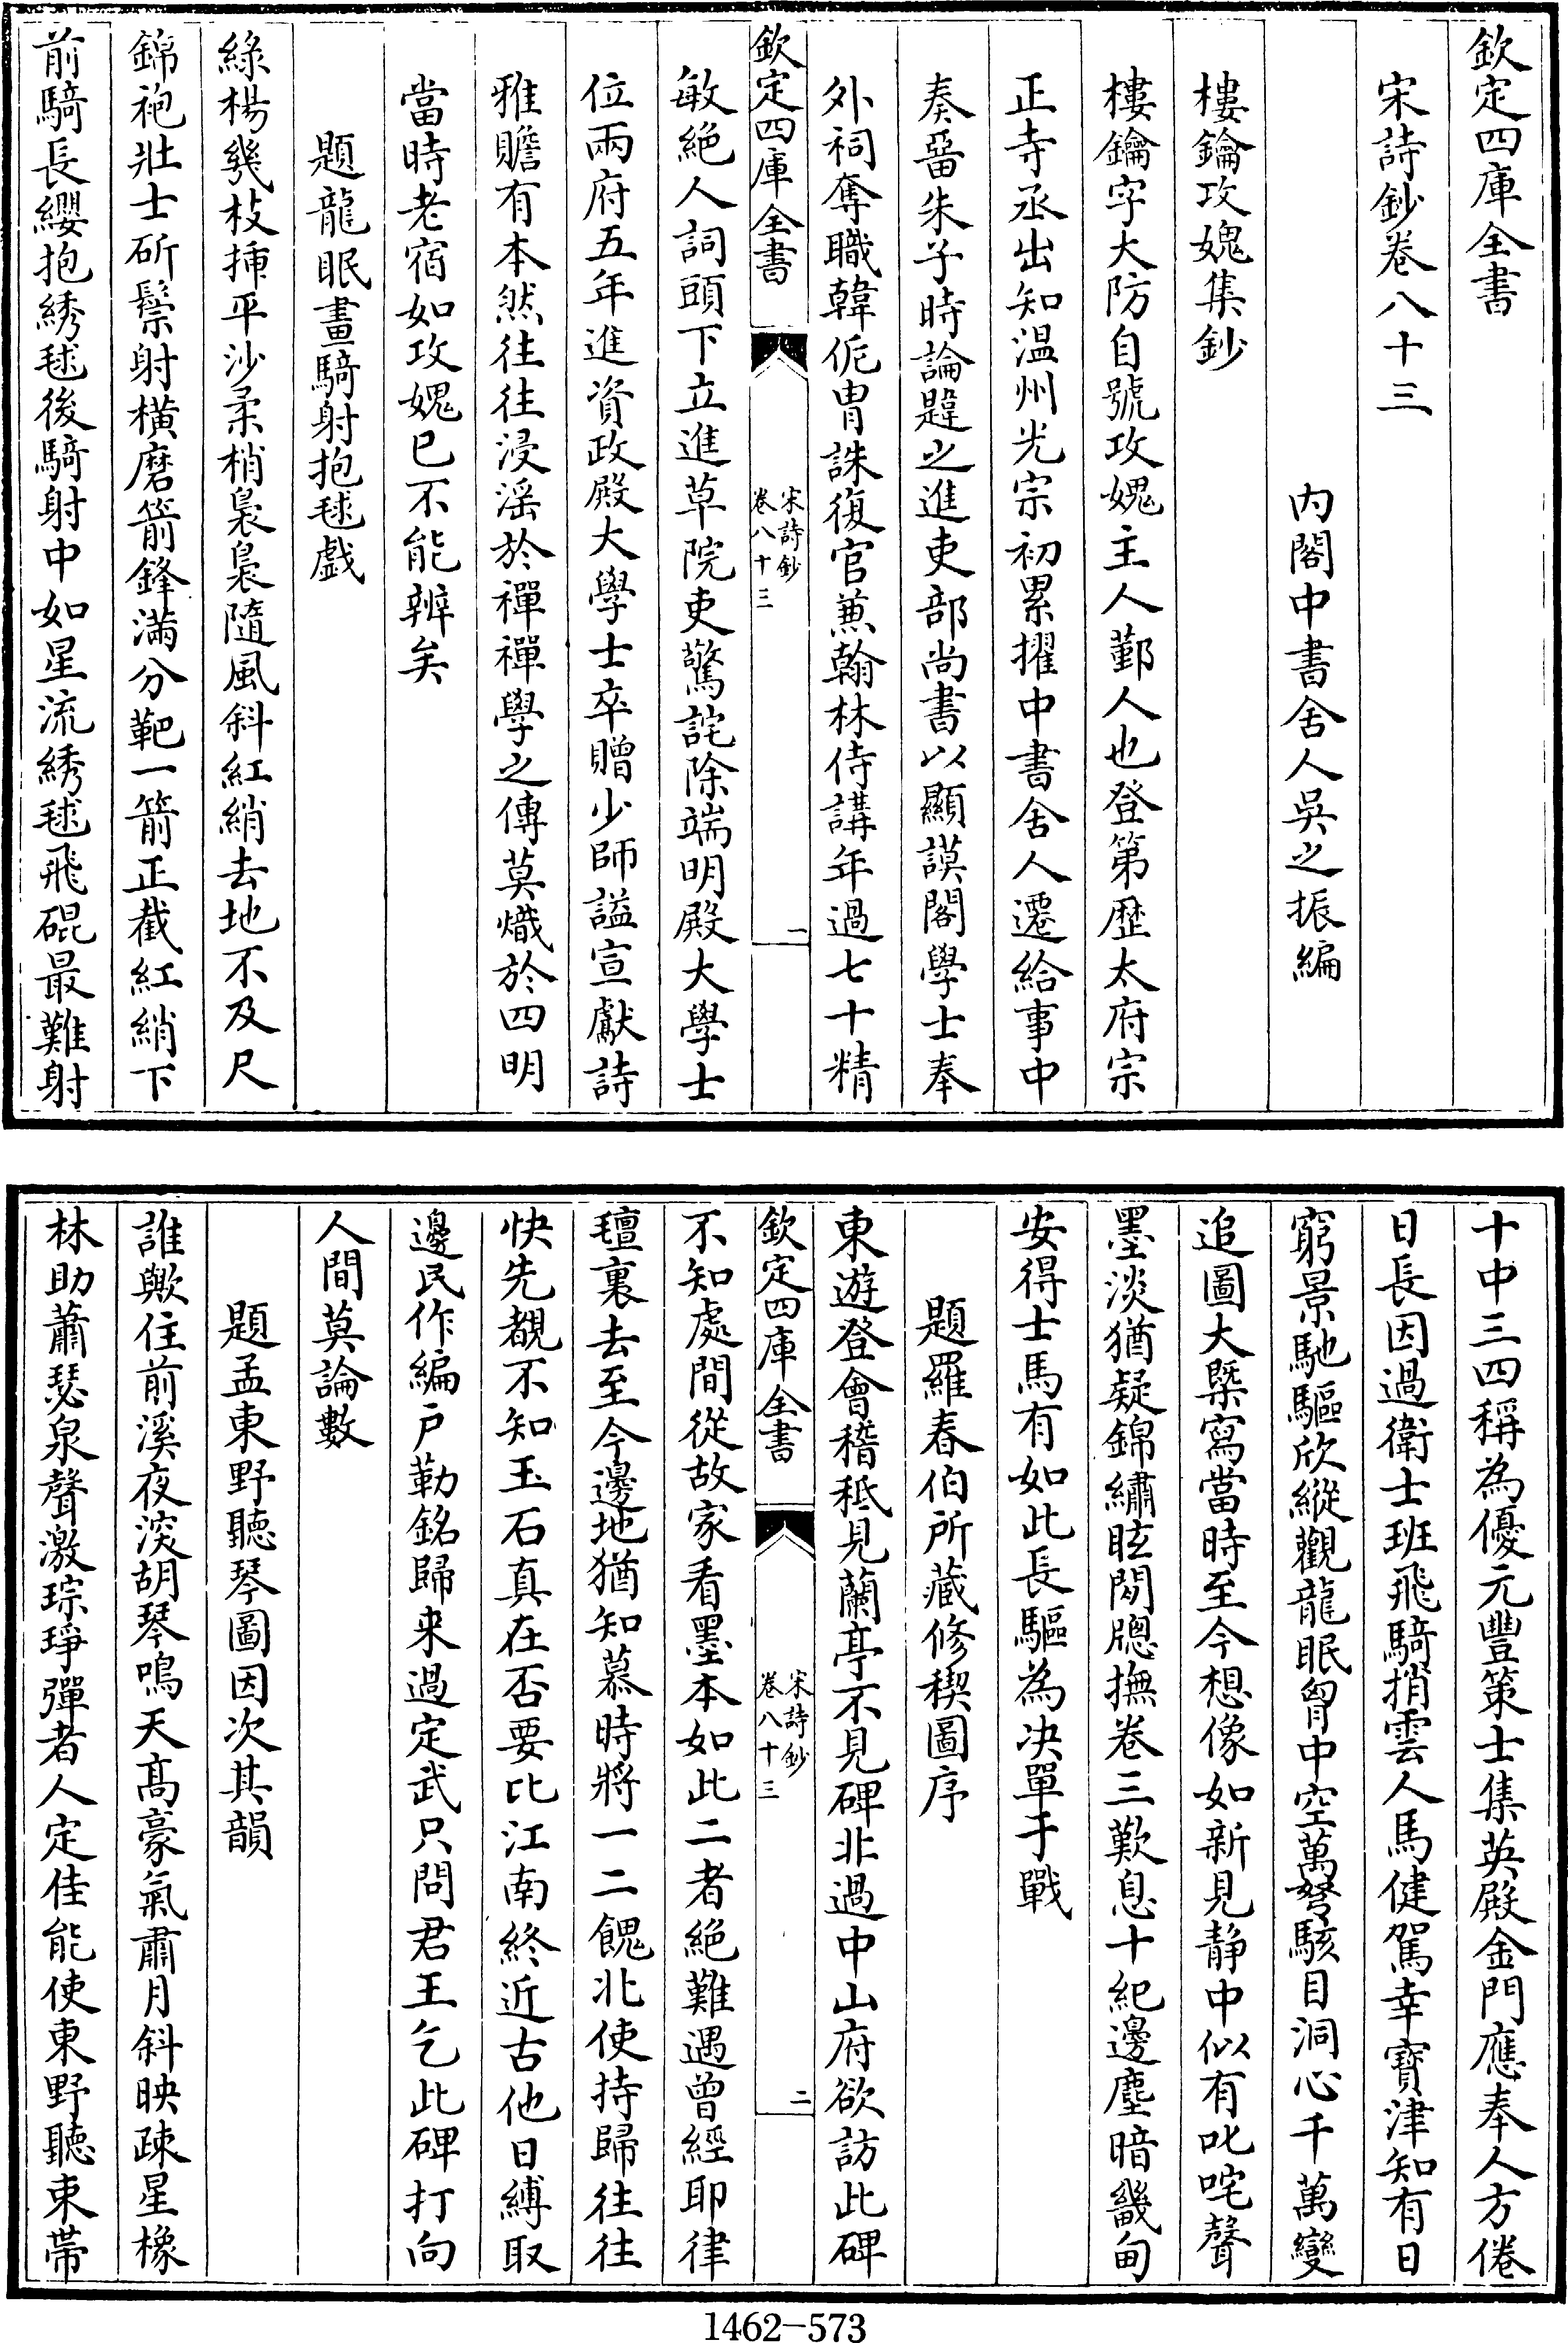 欽定四庫全書
宋詩鈔卷八十三
內閣中書舍人吳之振編
樓鑰攻媿集鈔
樓鑰字大防自號攻媿主人鄞人也登第歷太府宗
正寺丞出知温州光宗初累擢中書舍人遷給事中
奏畱朱子時論韙之進吏部尚書以顯謨閣學士奉
外祠奪職韓侂胄誅復官兼翰林侍講年過七十精
欽定四庫全書
宋詩鈔
卷八十三
一
敏絶人詞頭下立進草院吏驚詫除端明殿大學士
位兩府五年進資政殿大學士卒贈少師謚宣獻詩
雅贍有本然往往浸滛於禪禪學之傳莫熾於四明
當時老宿如攻媿巳不能辨矣
題龍眠畫騎射抱毬戲
綠楊幾枝揷平沙柔梢裊裊隨風斜紅綃去地不及尺
錦袍壯士斫鬃射橫磨箭鋒滿分靶一箭正截紅綃下
前騎長纓抱綉毬後騎射中如星流綉毬飛磙最難射
十中三四稱為優元豐策士集英殿金門應奉人方倦
日長因過衛士班飛騎捎雲人馬健駕幸寶津知有日
窮景馳驅欣縱觀龍眠胷中空萬弩駭目洞心千萬變
追圖大槩寫當時至今想像如新見静中似有叱咤聲
墨淡猶疑錦繡眩閱牕撫卷三歎息十紀邊塵暗畿甸
安得士馬有如此長驅為决單于戰
題羅春伯所藏修稧圖序
東遊登會稽秪見蘭亭不見碑非過中山府欲訪此碑
欽定四庫全書
宋詩鈔
卷八十三
二
不知處間從故家看墨本如此二者絶難遇曾經耶律
氊裹去至今邊地猶知慕時將一二餽北使持歸往往
快先覩不知玉石真在否要比江南終近古他日縛取
邊民作編户勒銘歸來過定武只問君王乞此碑打向
人間莫論數
題孟東野聽琴圖因次其韻
誰歟住前溪夜深胡琴鳴天髙豪氣肅月斜映疎星橡
林助蕭瑟泉聲激琮琤彈者人定佳能使東野聽束帶
1462-573